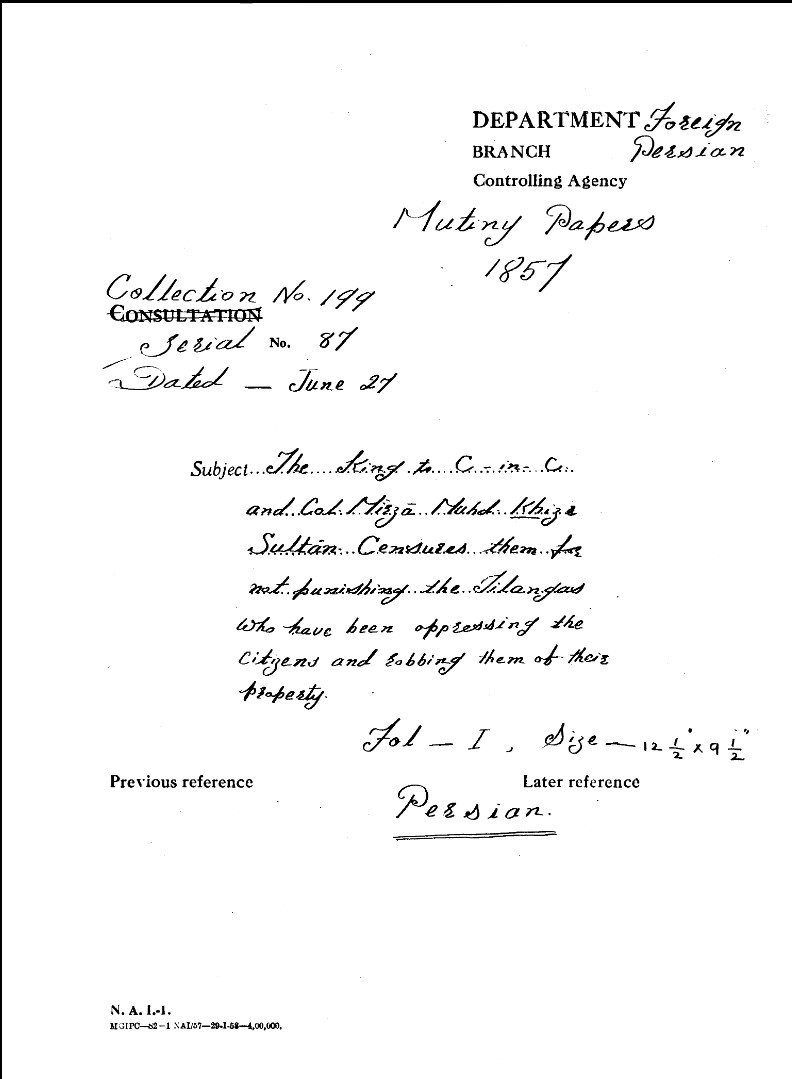 DEPARTMENT Foreign
BRANCH Persian
Controlling Agency
Mutiny Papers
1857
Collection No. 199
CONSULTATION
Serial No. 87
Dated — June 27
Subject... The King to C-in-C.
and Col. Mirzā Muhd. Khizr
Sultān. Censures them for
not punishing the Tilangas
who have been oppressing the
Citzens and robbing them of their
property.
Fol — I, Size — 12 1/2" x 9 1/2"
Previous reference Later reference
Persian.
N. A. I.-1.
MGIPC—S2—1 NAI/57—29-1-58—4,00,000.